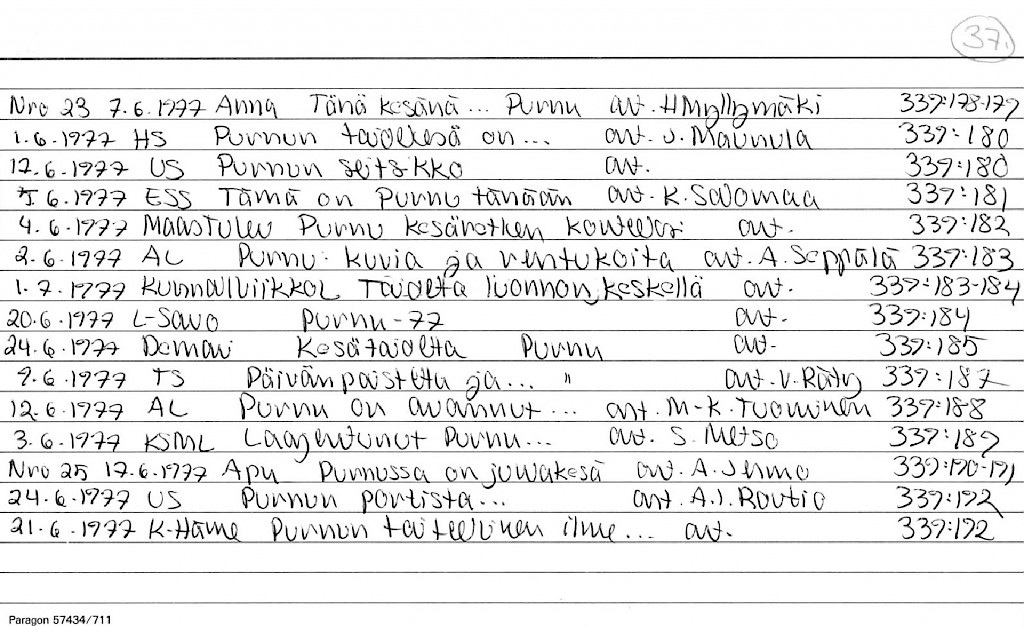 37.
Nro 23 7.6.1977 Anna Tänä kesänä... Purnu art. H Myllymäki 339:178-179
1.6.1977 HS Purnun taiteessa on... art. J. Maunula 339:180
12.6.1977 US Purnun seitsikko art. 339:180
5.6.1977 ESS Tämä on Purnu tänään art. K. Salomaa 339:181
4.6.1977 Maas.Tulev Purnu kesäretken kohteeksi art. 339:182
2.6.1977 AL Purnu: kuvia ja rentukoita art. A. Seppälä 339:183
1.7.1977 Kunnallviikkol Taidetta luonnon keskellä art. 339:183-184
20.6.1977 L-Savo Purnu-77 art. 339:184
24.6.1977 Demari Kesätaidetta Purnu art. 339:185
9.6.1977 TS Päivänpaistetta ja... " art. V. Räty 339:187
12.6.1977 AL Purnu on avannut... art. M-K. Tuominen 339:188
3.6.1977 KSML Laajentunut Purnu... art. S. Metso 339:189
Nro 25 17.6.1977 Apu Purnussa on juuakesä art. A. Jermo 339:190-191
24.6.1977 US Purnun portista... art. A.I. Routio 339:192
21.6.1977 K-Häme Purnun taiteellinen ilme... art. 339:192
Paragon 57434/711